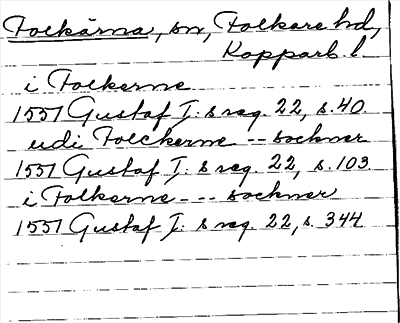 Folkärna, sn, Folkare hd,
Kopparb. l.
i Folkerne
1551 Gustaf I:s reg. 22, s. 40.
udi Folckerne -- sockner
1551 Gustaf I:s reg. 22, s. 103.
i Folkerne --- sockner
1551 Gustaf I:s reg. 22, s. 344